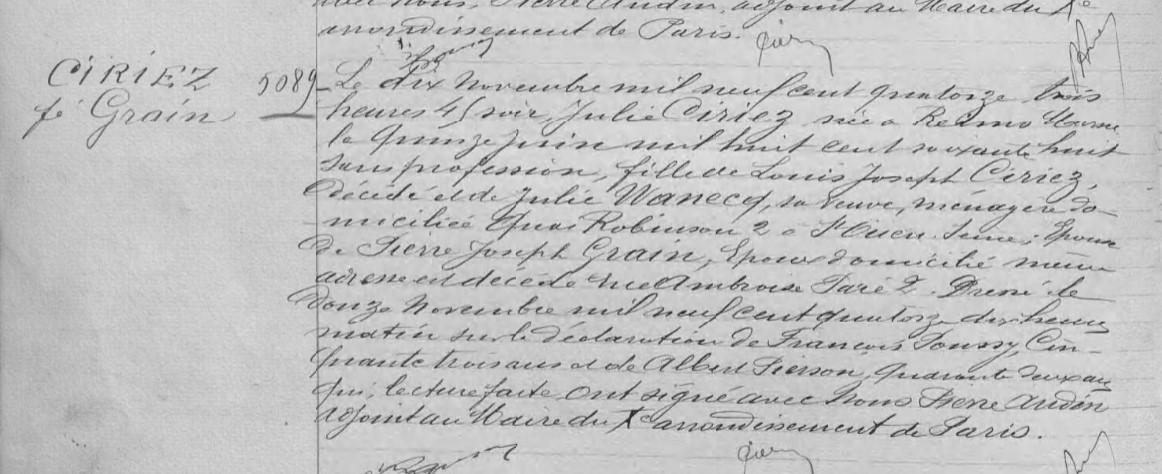 avec Nous, Pierre Audin, adjoint au Maire du Xe
arrondissement de Paris.
CIRIEZ
fe Grain
5089
Le dix Novembre mil neuf cent quatorze trois
heures 45 soir, Julie Ciriez née a Reims Marne
le quinze Juin mil huit cent soixante huit
sans profession, fille de Louis Joseph Ciriez,
décédé et de Julie Wanecq, sa Veuve, ménagère do-
miciliée Quai Robinson 2 a St Ouen Seine; Epouse
de Pierre Joseph Grain, Epoux domicilié même
adresse est décédée rue Ambroise Paré 2. Dressé le
douze Novembre mil neuf cent quatorze dix heures
matin sur la déclaration de François Poussy, Cin-
quante trois ans et de Albert Pierson, quarante deux ans
qui, lecture faite ont signé avec Nous Pierre Audin
adjoint au Maire du Xe arrondissement de Paris.